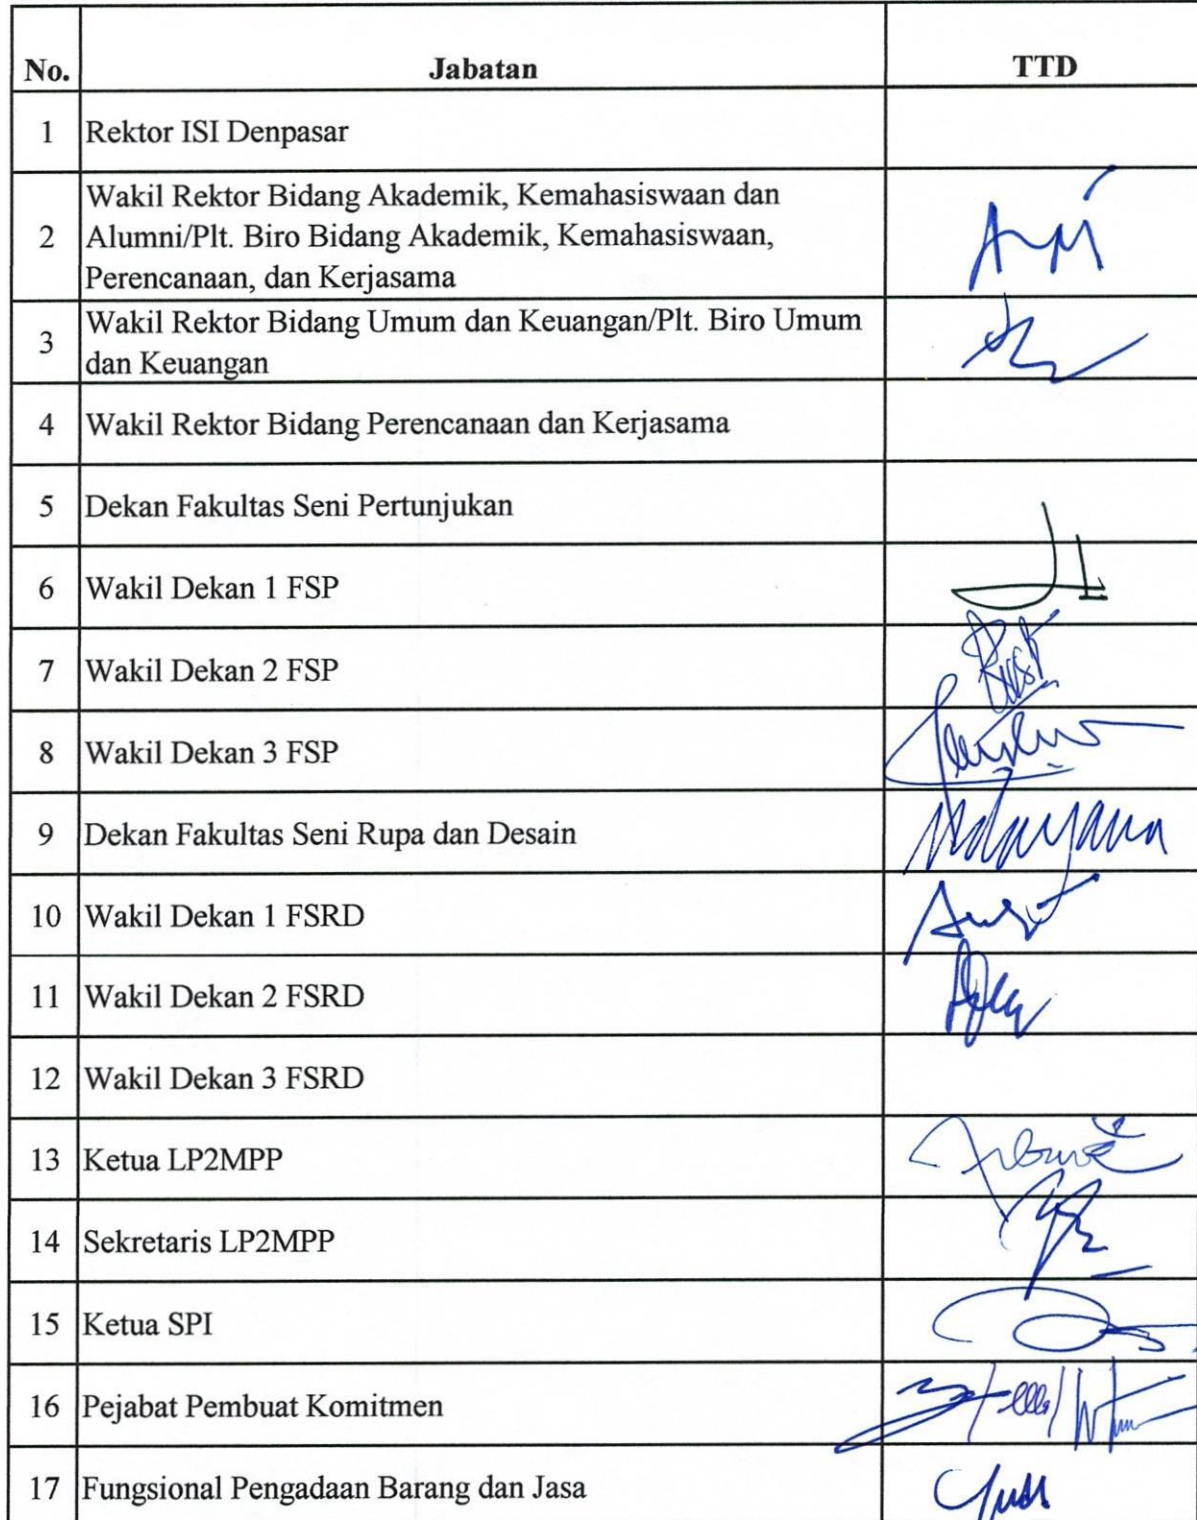 No. Jabatan TTD
1 Rektor ISI Denpasar
Wakil Rektor Bidang Akademik, Kemahasiswaan dan
2 Alumni/Plt. Biro Bidang Akademik, Kemahasiswaan,
Perencanaan, dan Kerjasama
3 Wakil Rektor Bidang Umum dan Keuangan/Plt. Biro Umum
dan Keuangan
4 Wakil Rektor Bidang Perencanaan dan Kerjasama
5 Dekan Fakultas Seni Pertunjukan
6 Wakil Dekan 1 FSP
7 Wakil Dekan 2 FSP
8 Wakil Dekan 3 FSP
9 Dekan Fakultas Seni Rupa dan Desain
10 Wakil Dekan 1 FSRD
11 Wakil Dekan 2 FSRD
12 Wakil Dekan 3 FSRD
13 Ketua LP2MPP
14 Sekretaris LP2MPP
15 Ketua SPI
16 Pejabat Pembuat Komitmen
17 Fungsional Pengadaan Barang dan Jasa